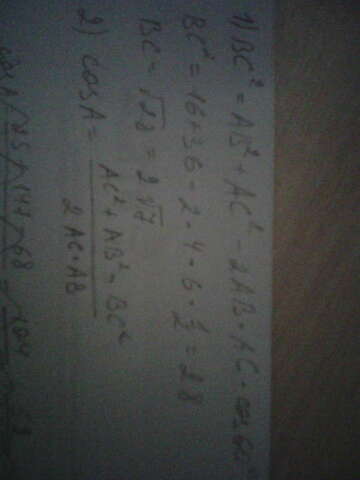 1) BC² = AB² + AC² - 2AB · AC · cos
BC² = 16 + 36 - 2 · 4 · 6 · 1/2 = 28
BC = √28 = 2√7
2) cos A = AC² + AB² - BC² / 2 AC · AB
cos A